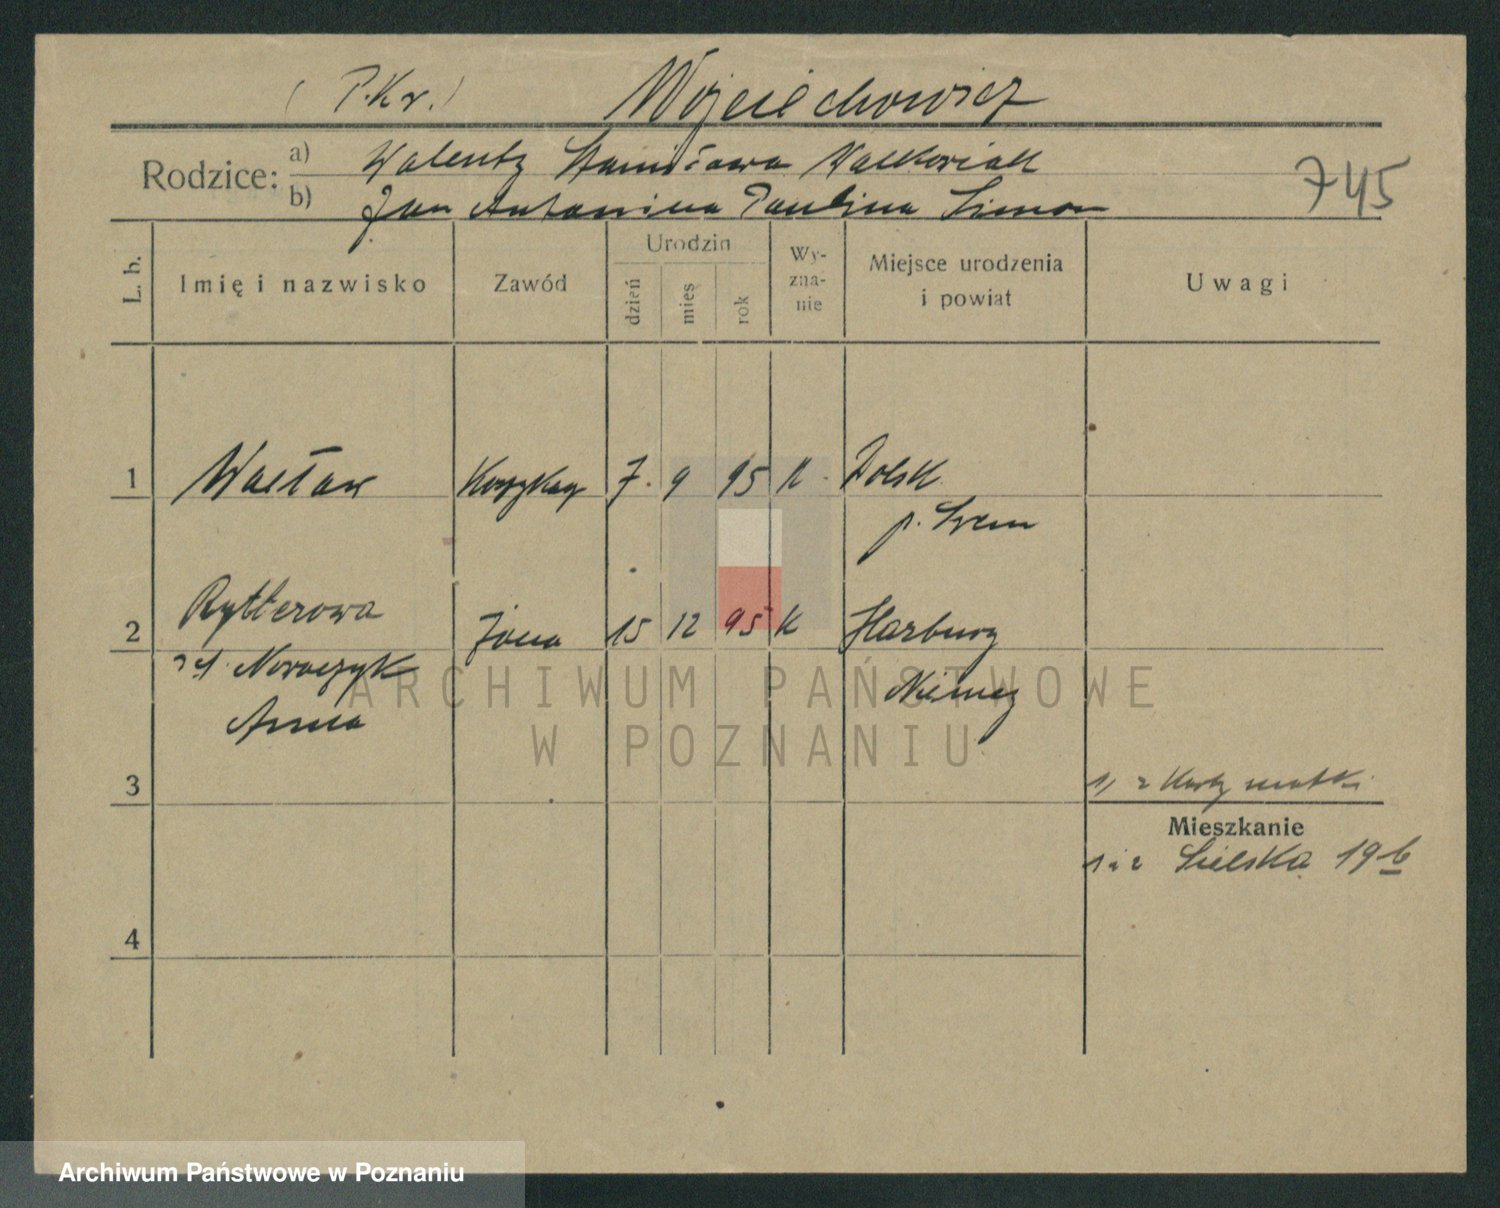 (P.Kr.) Wojciechowicz
Rodzice: a) Walenty Stanisława Walkowiak
b) Jan Antonina Paulina Simon
745
L. b. Imię i nazwisko Zawód Urodzin dzień mies rok Wy-zna-nie Miejsce urodzenia i powiat Uwagi
1 Wacław Koszykarz 7. 9 95 K. Dolsk
p. Śrem
2 Rytterowa żona 15 12 95 K Harburg
Nowaczyk Niemcy
Anna
ARCHIWUM PAŃSTWOWE
W POZNANIU
3
1) z Karty matki
Mieszkanie
1 i 2 Sielska 19 b
4
Archiwum Państwowe w Poznaniu